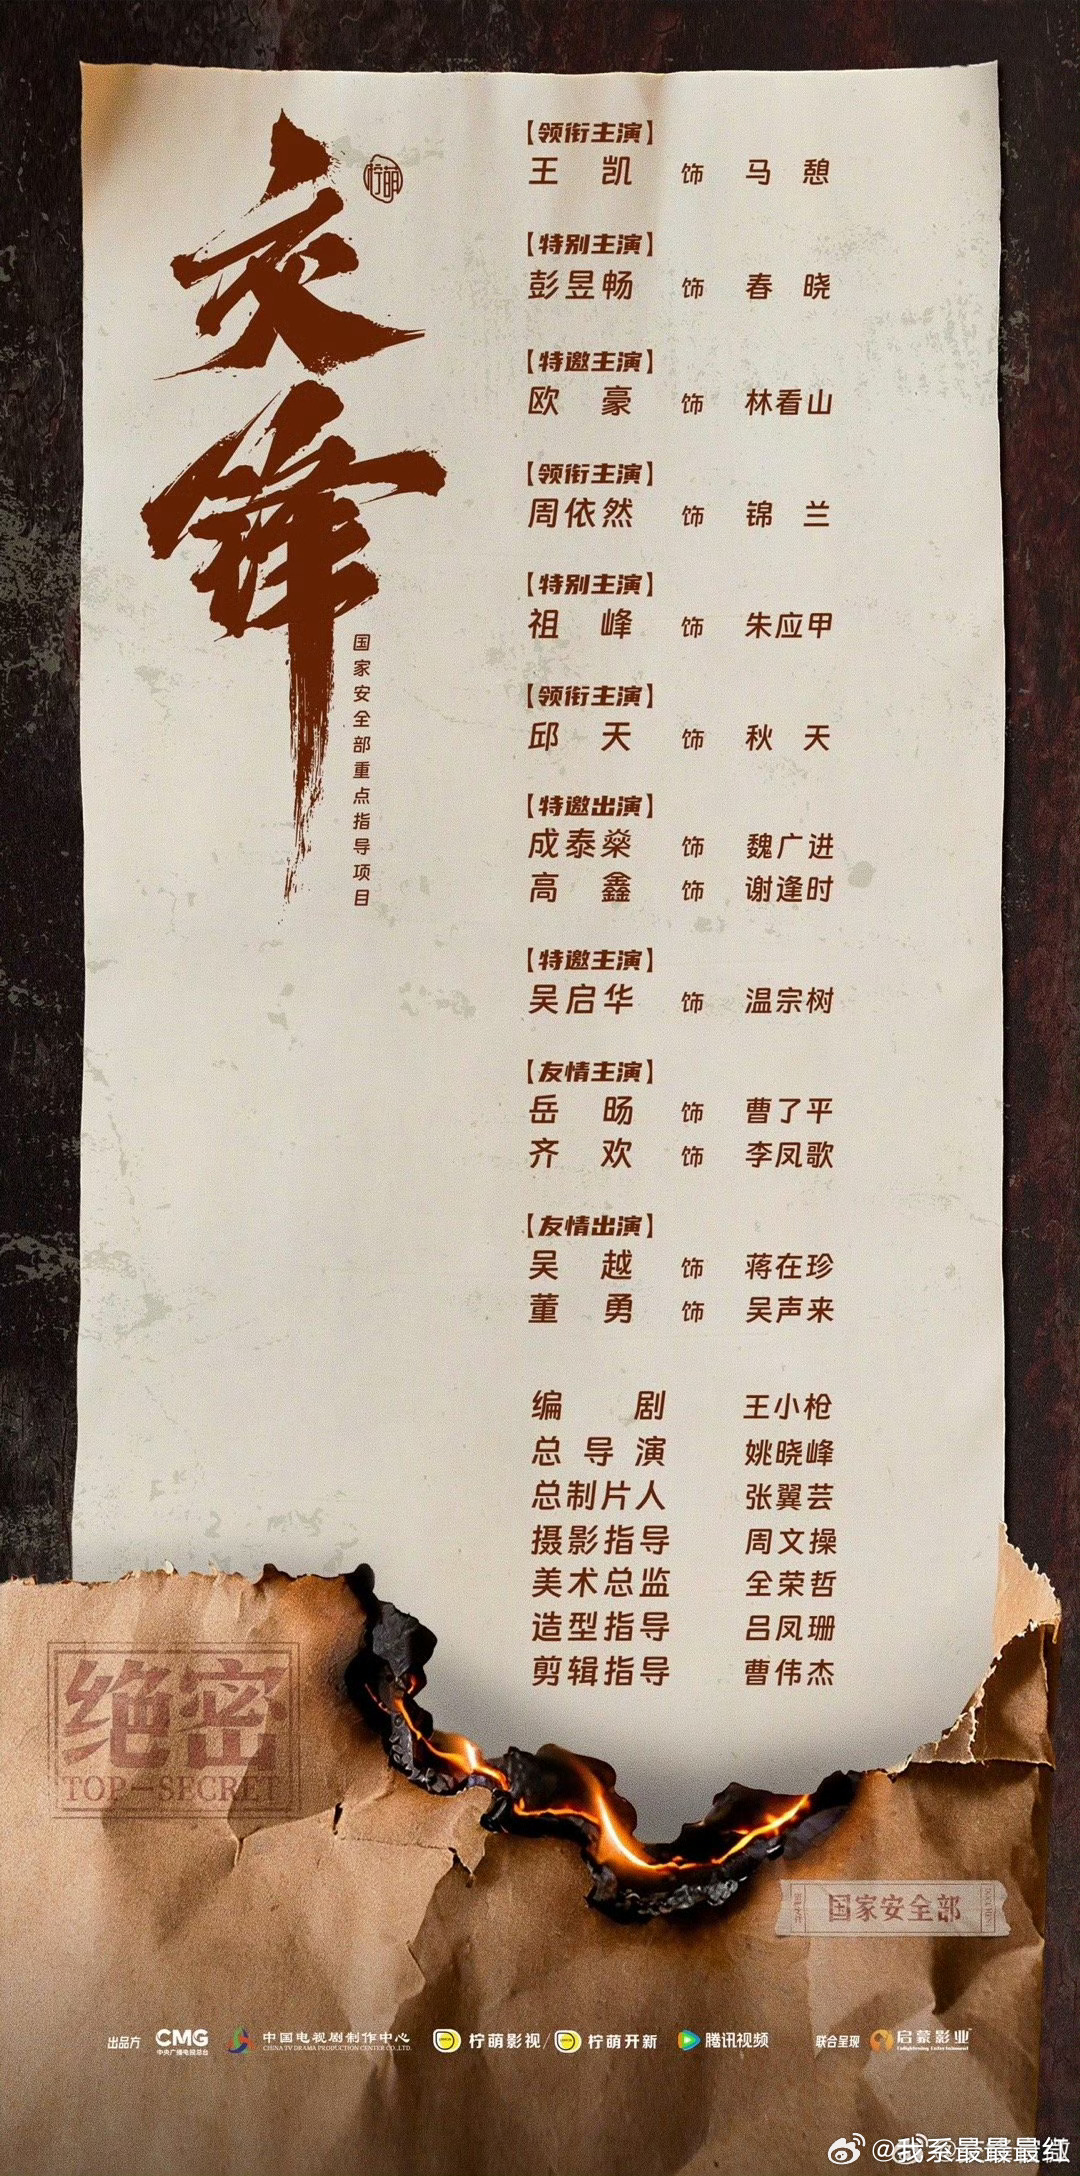 交锋
柠萌
国家安全部重点指导项目
【领衔主演】
王凯 饰 马憩
【特别主演】
彭昱畅 饰 春晓
【特邀主演】
欧豪 饰 林看山
【领衔主演】
周依然 饰 锦兰
【特别主演】
祖峰 饰 朱应甲
【领衔主演】
邱天 饰 秋天
【特邀出演】
成泰燊 饰 魏广进
高鑫 饰 谢逢时
【特邀主演】
吴启华 饰 温宗树
【友情主演】
岳旸 饰 曹了平
齐欢 饰 李凤歌
【友情出演】
吴越 饰 蒋在珍
董勇 饰 吴声来
编剧 王小枪
总导演 姚晓峰
总制片人 张翼芸
摄影指导 周文操
美术总监 全荣哲
造型指导 吕凤珊
剪辑指导 曹伟杰
绝密
TOP-SECRET
国家安全部
出品方 CMG 中央广播电视总台 中国电视剧制作中心 CHINA TV DRAMA PRODUCTION CENTER CO.,LTD. 柠萌影视/柠萌开新 腾讯视频 联合呈现 启蒙影业 Enlightening Entertainment
@我系最最最红